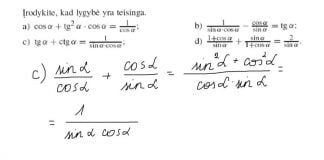 Įrodykite, kad lygybė yra teisinga.
a) cos α + tg² α · cos α = 1/cos α;
b) 1/(sin α·cos α) − cos α/sin α = tg α;
c) tg α + ctg α = 1/(sin α·cos α);
d) (1+cos α)/sin α + sin α/(1+cos α) = 2/sin α.
c) sin α/cos α + cos α/sin α = (sin² α + cos² α)/(cos α · sin α) =
= 1/(sin α cos α)